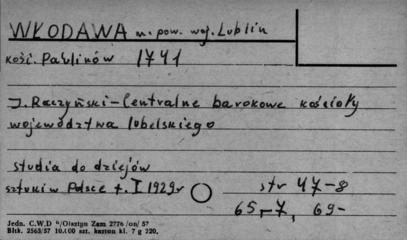 WŁODAWA m. pow. woj. Lublin
kość. Paulinów 1741
J. Raczyński - Centralne barokowe kościoły
województwa lubelskiego
studia do dziejów
sztuki w Polsce t. I 1929r str 47-8
65,-7, 69-
Jedn. C.W.D "/Olsztyn Zam 2776 /on/ 57
Bltk. 2563/57 10.000 szt. karton kl. 7 g 220.